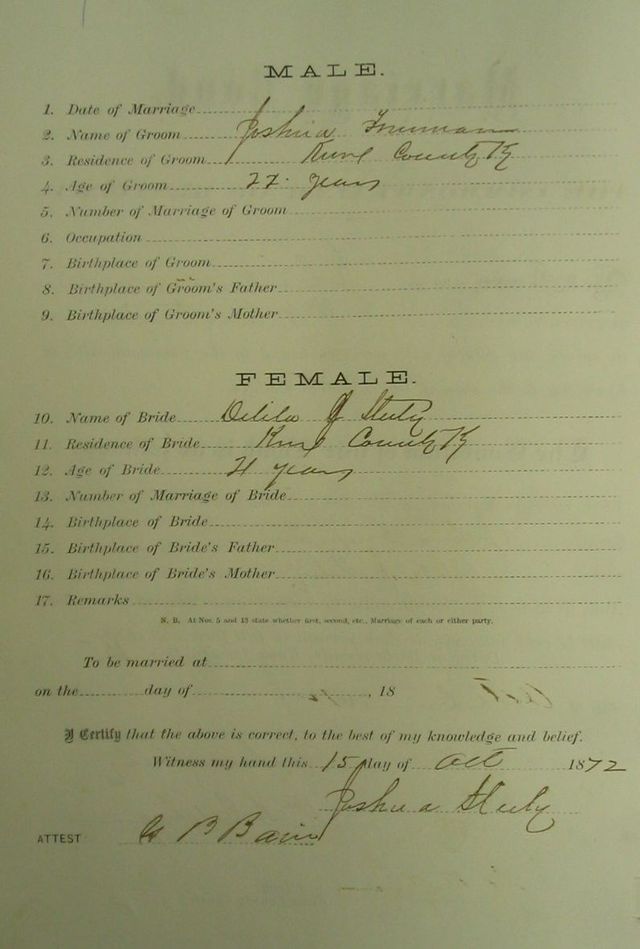 MALE.
1. Date of Marriage
2. Name of Groom Joshua Freeman
3. Residence of Groom Knox County Ky
4. Age of Groom 22 years
5. Number of Marriage of Groom
6. Occupation
7. Birthplace of Groom
8. Birthplace of Groom's Father
9. Birthplace of Groom's Mother
FEMALE.
10. Name of Bride Delila J Steely
11. Residence of Bride Knox County Ky
12. Age of Bride 21 years
13. Number of Marriage of Bride
14. Birthplace of Bride
15. Birthplace of Bride's Father
16. Birthplace of Bride's Mother
17. Remarks
N. B. At Nos. 5 and 13 state whether first, second, etc., Marriage of each or either party.
To be married at
on the day of , 18
I Certify that the above is correct, to the best of my knowledge and belief.
Witness my hand this 15 day of Oct 1872
Joshua Steely
ATTEST B Bain